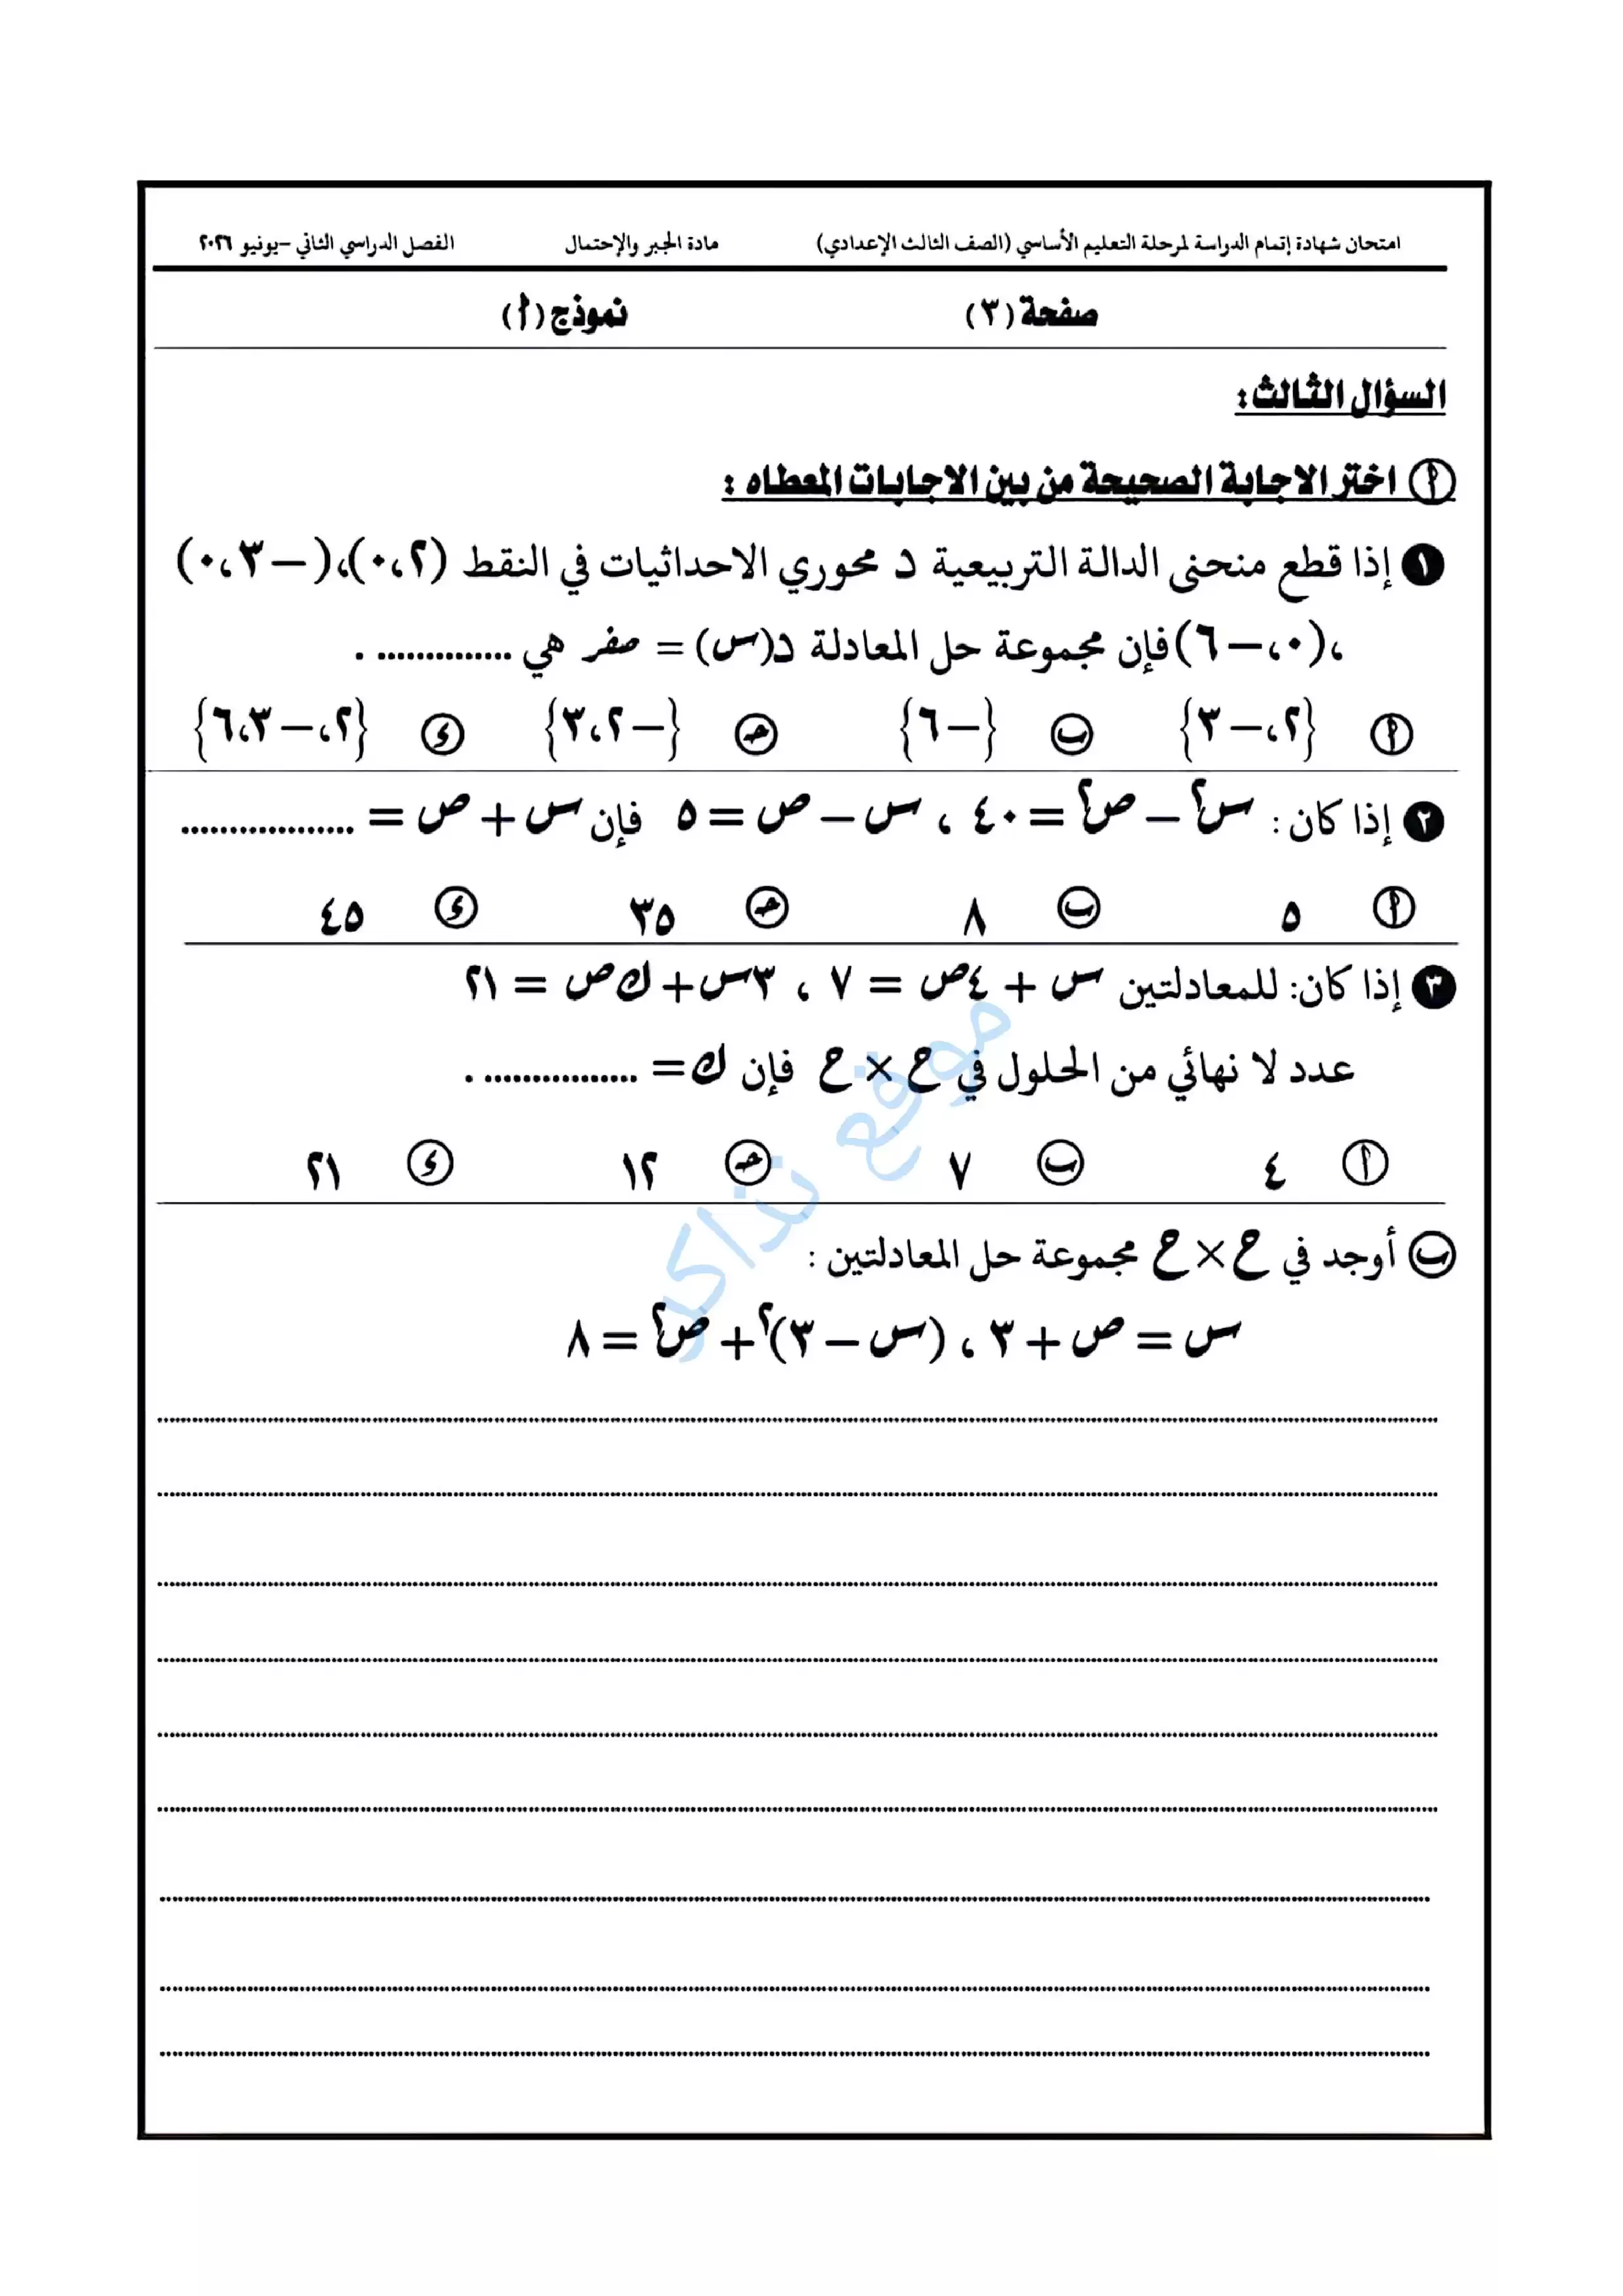 امتحان شهادة إتمام الدراسة لمرحلة التعليم الأساسي (الصف الثالث الإعدادي) مادة الجبر والإحتمال الفصل الدراسي الثاني -يونيو ٢٠٢٦
صفحة (٣) نموذج (أ)
السؤال الثالث:
أ اختر الاجابة الصحيحة من بين الاجابات المعطاه :
١ إذا قطع منحنى الدالة التربيعية د محوري الاحداثيات في النقط (٢،٠)،(−٣،٠)
،(٠،−٦) فإن مجموعة حل المعادلة د(س) = صفر هي .............. .
أ {٢،−٣} ب {−٦} ج {−٢،٣} د {٢،−٣،٦}
٢ إذا كان: س² − ص² = ٤٠ ، س − ص = ٥ فإن س + ص = ..................
أ ٥ ب ٨ ج ٣٥ د ٤٥
٣ إذا كان: للمعادلتين س + ٤ص = ٧ ، ٣س + ك ص = ٢١
عدد لا نهائي من الحلول في ح × ح فإن ك = ................ .
أ ٤ ب ٧ ج ١٢ د ٢١
ب أوجد في ح × ح مجموعة حل المعادلتين :
س = ص + ٣ ، (س − ٣)² + ص² = ٨
موقع نذاكر